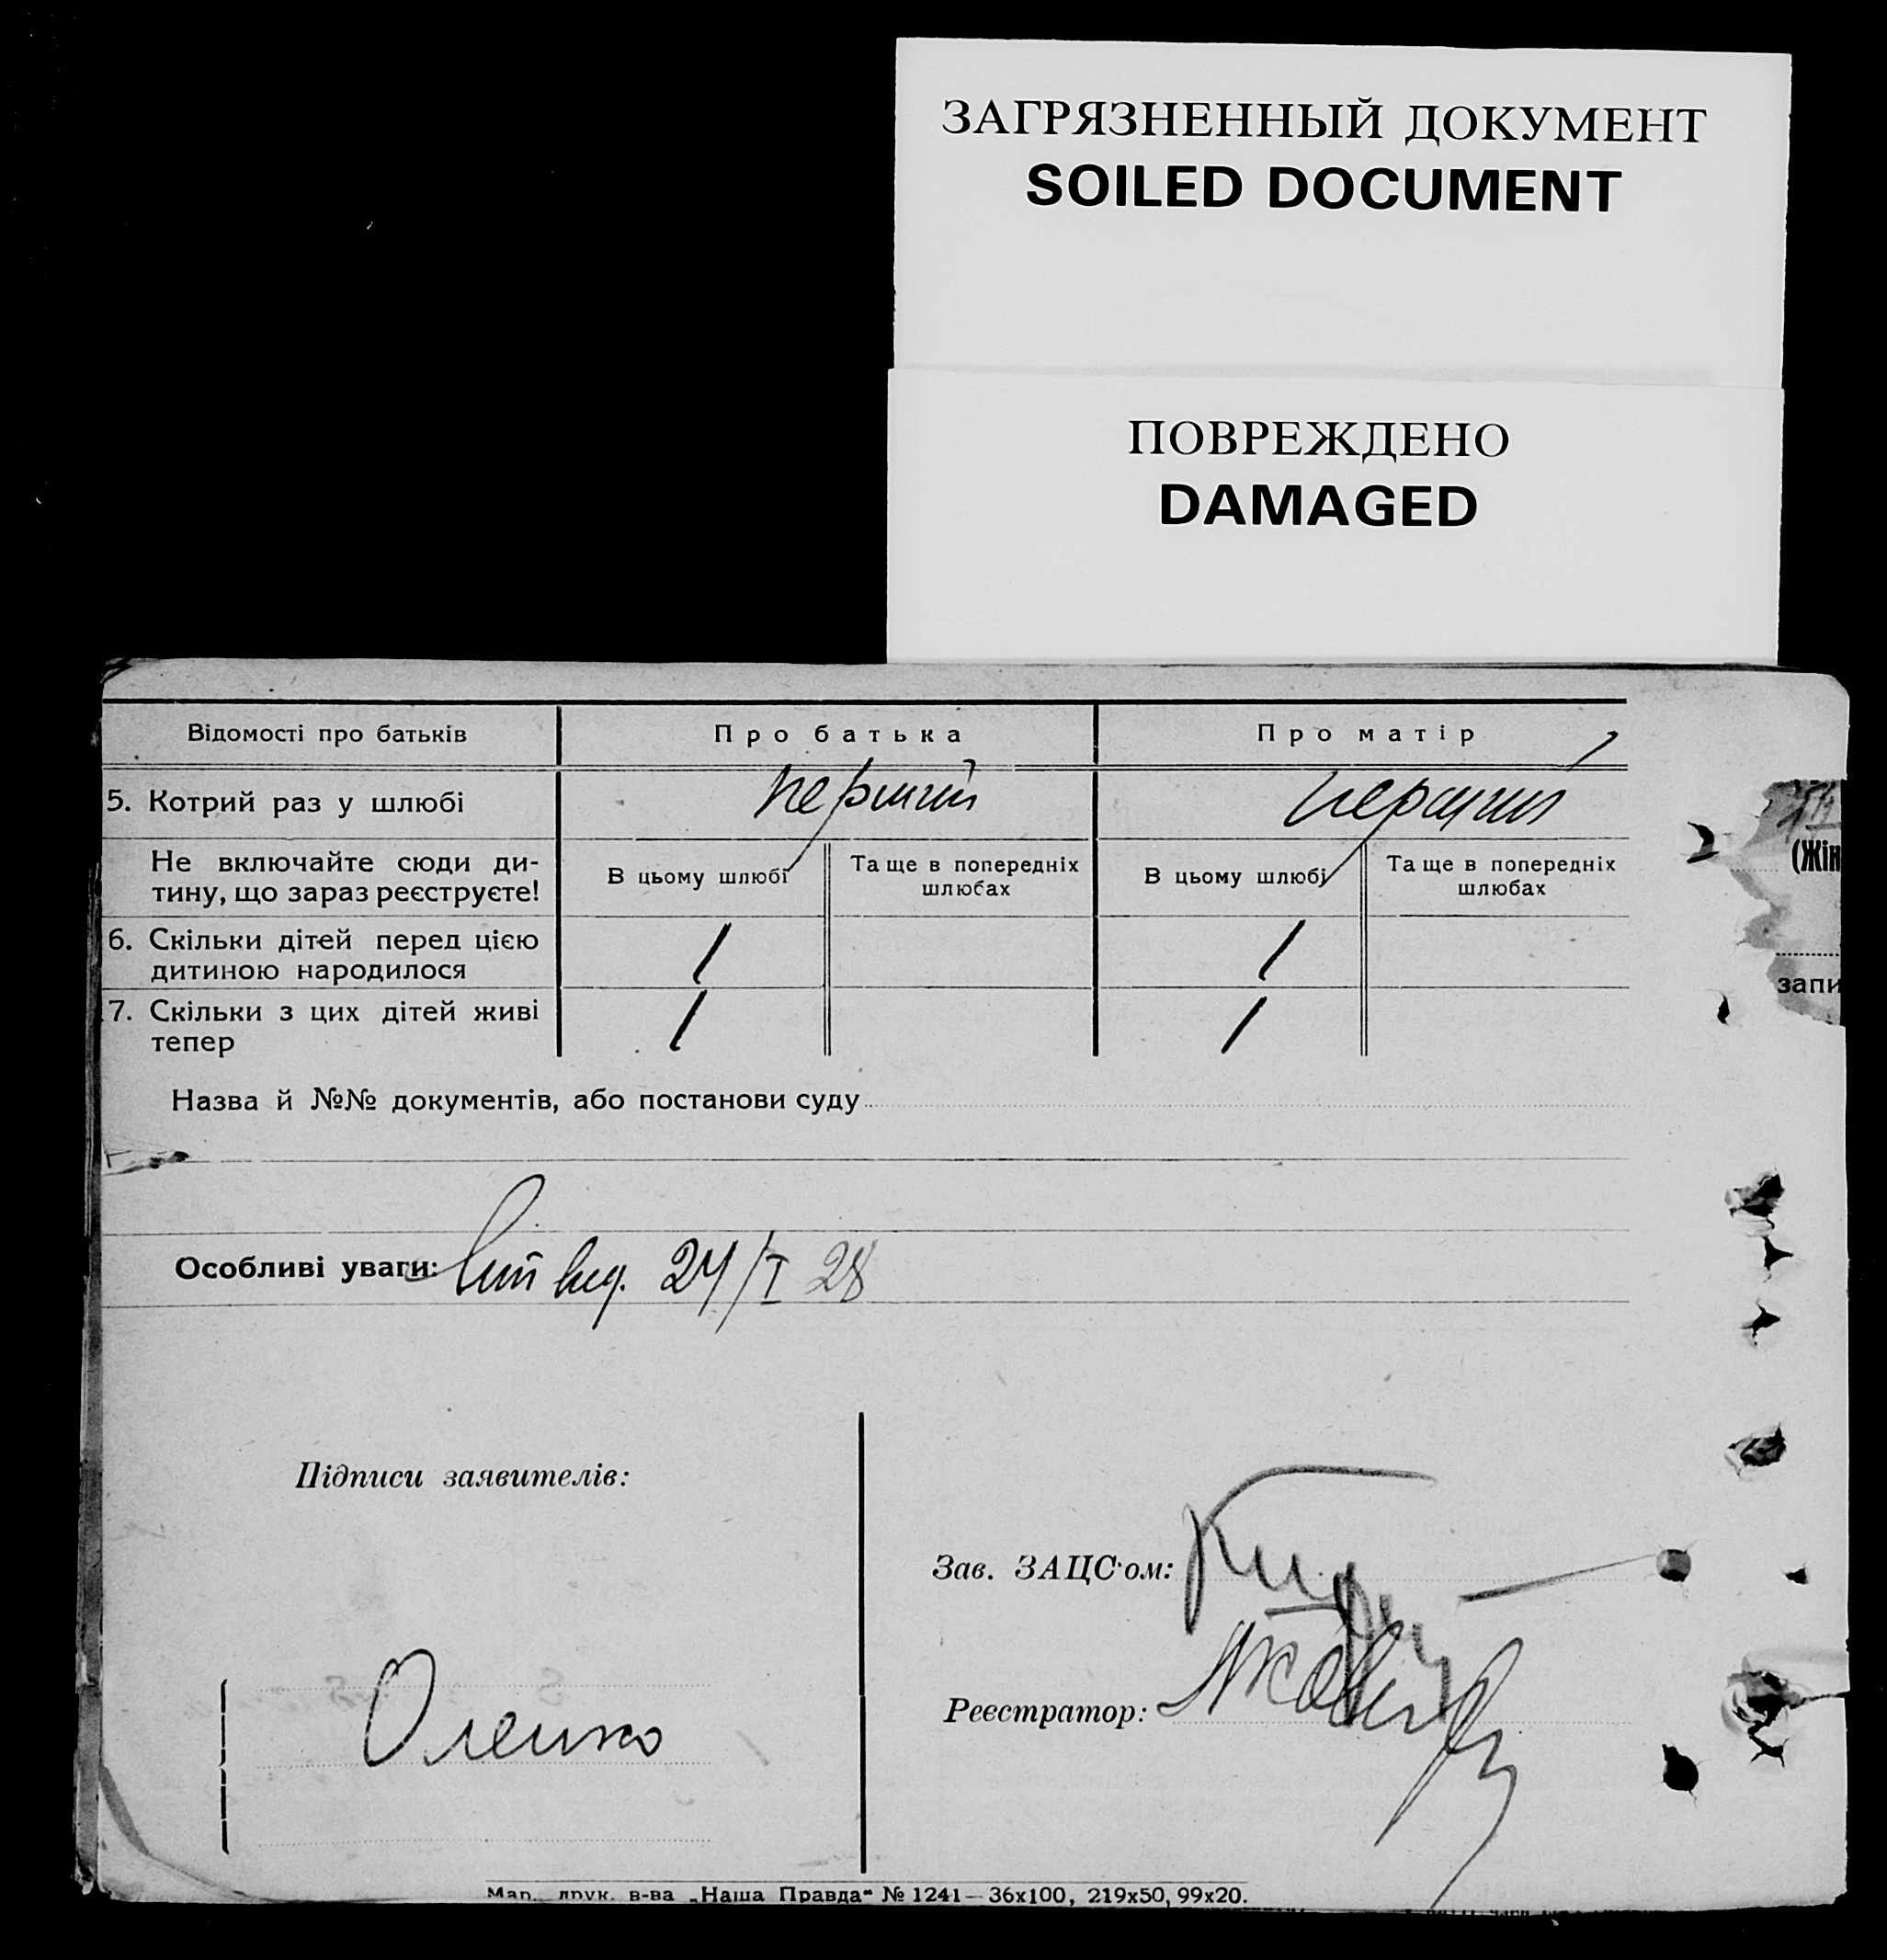 ЗАГРЯЗНЕННЫЙ ДОКУМЕНТ
SOILED DOCUMENT
ПОВРЕЖДЕНО
DAMAGED
Відомості про батьків Про батька Про матір
5. Котрий раз у шлюбі перший перший
Не включайте сюди ди-
тину, що зараз реєструєте!
В цьому шлюбі
Та ще в попередніх
шлюбах
В цьому шлюбі
Та ще в попередніх
шлюбах
(Жін
6. Скільки дітей перед цією
дитиною народилося
1 1
запи
7. Скільки з цих дітей живі
тепер
1 1
Назва й №№ документів, або постанови суду
Особливі уваги: 24/I 28
Підписи заявителів:
Зав. ЗАЦС'ом:
Реєстратор:
Олейко
Мар. друк. в-ва „Наша Правда“ № 1241—36х100, 219х50, 99х20.